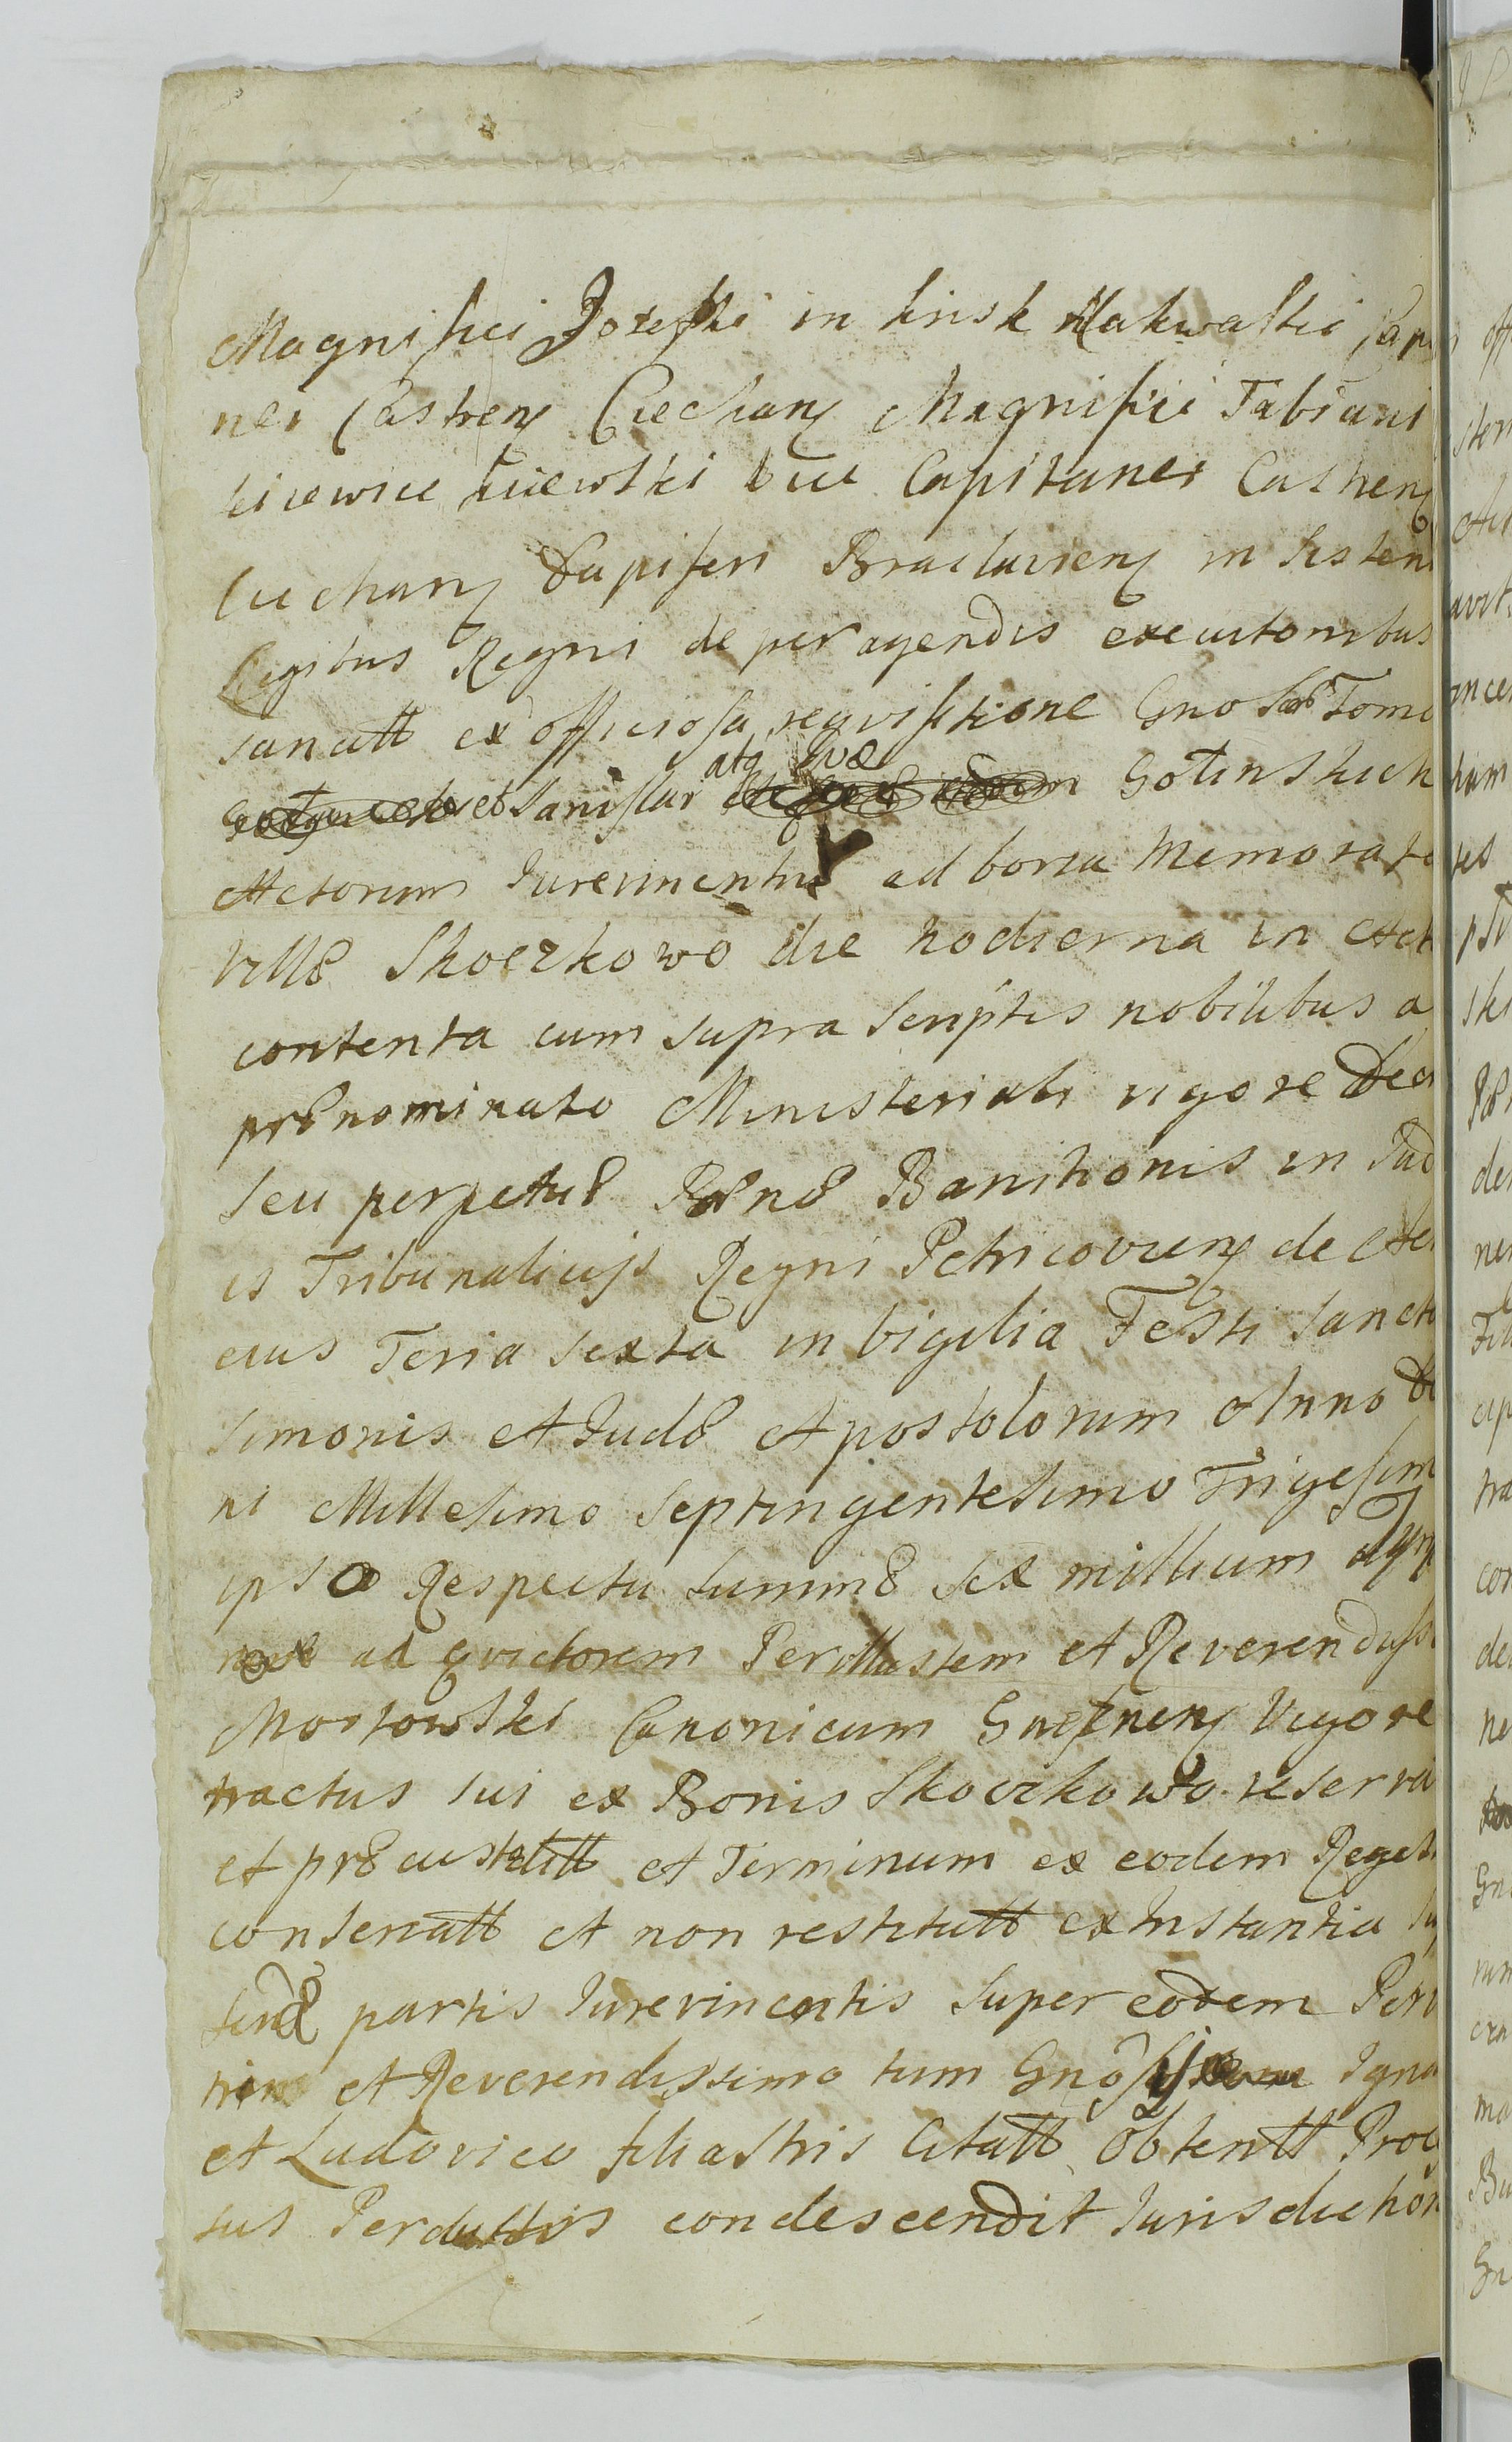 Magnifici Josephi in Krisk Nakwaski Capi
nei Castren Ciechan Magnifici Fabiani
Kicewice Kicewski Vice Capitanei Castren
Ciechan Dapiferi Braclavien insisten
Legibus Regni de peragendis executionibus
sancitt ex officiosa requisitione Gnosor Tom
et Stanislai atq suæ Gotinskich
Actorum Jurevincentiu ad bona memorat
villæ Skoczkowo die hodierna in Act
contenta cum suprascriptis nobilibus a
prænominato Ministeriali vigore Decr
seu perpetuæ Pænæ Banitionis in Jud
is Tribunalicijs Regni Petricovien de Act
eius Feria sexta in Vigilia Festi Sancto
Simonis et Judæ Apostolorum Anno D
ni Millesimo Septingentesimo Trigesim
ipso Respectu summæ sex millium
ad evictorem Perillustrem et Reverendissi
Mostowski Canonicum Gnesnen Vigore
tractus sui ex Bonis Skoczkowo reserva
et præcustitt et Terminum ex eodem Regest
conservatt et non restitutt ex Instantia
partis Jurevincentis super eodem Peri
trem et Reverendissimo tum Gnosis Igna
et Ludovico filiastris Citatt Obtentt Proce
sus Perdultis condescendit Jurisdiction